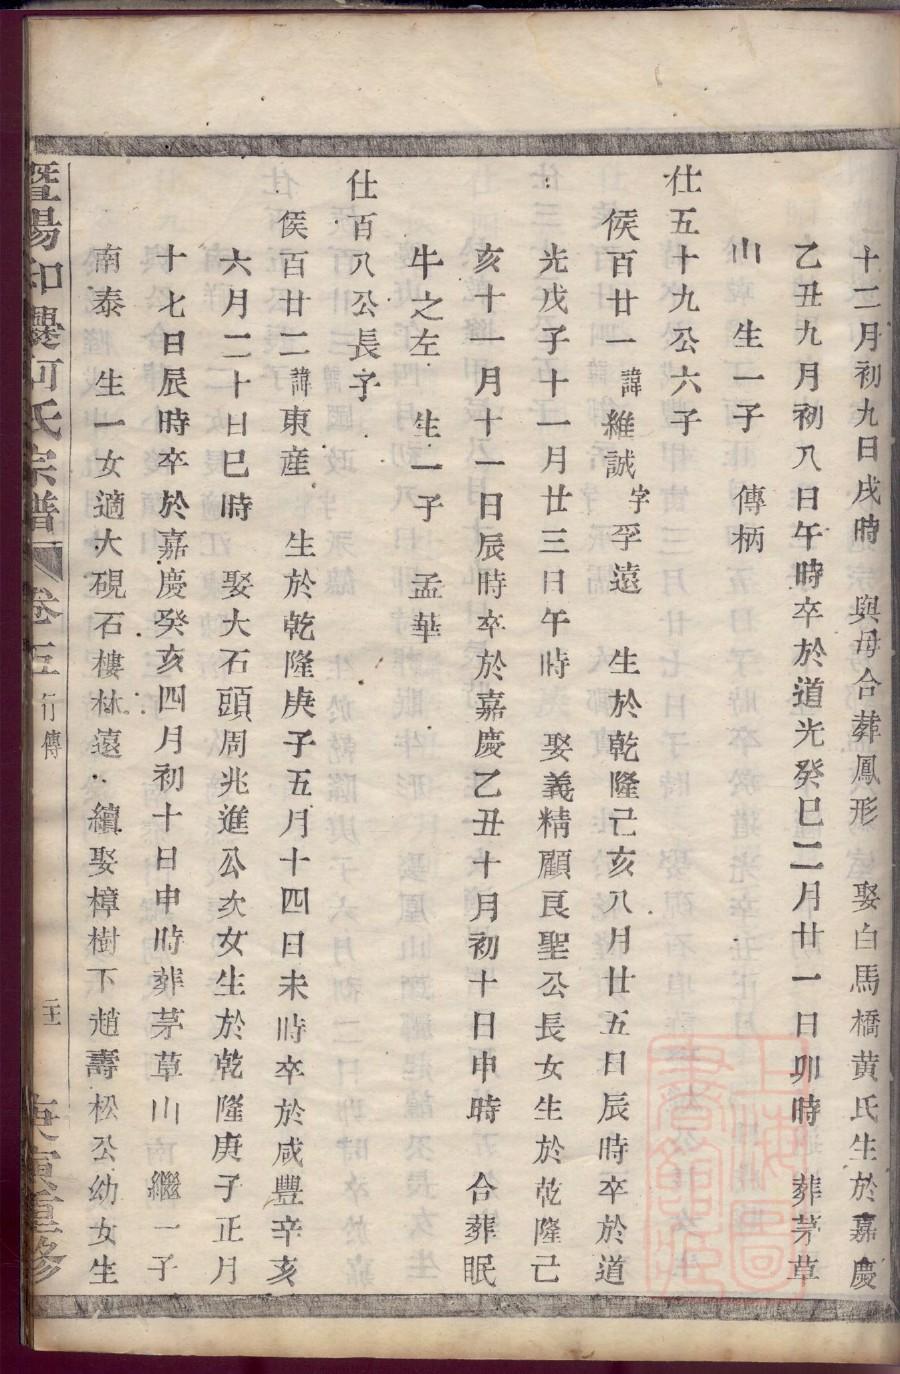 十二月初九日戌時　與母合葬鳳形　娶白馬橋黄氏生於嘉慶
乙丑九月初八日午時卒於道光癸巳二月廿一日卯時　葬茅草
山　生一子　傳柄
仕五十九公六子
侯百廿一諱維誠字孚遠　生於乾隆己亥八月廿五日辰時卒於道
光戊子十一月廿三日午時　娶義精顧良聖公長女生於乾隆己
亥十一月十一日辰時卒於嘉慶乙丑十月初十日申時　合葬眠
牛之左　生一子　孟華
仕百八公長子
侯百廿二諱東産　生於乾隆庚子五月十四日未時卒於咸豐辛亥
六月二十日巳時　娶大石頭周兆進公次女生於乾隆庚子正月
十七日辰時卒於嘉慶癸亥四月初十日申時葬茅草山　繼一子
南泰　生一女適大硯石樓林遠　續娶樟樹下趙壽松公幼女生
暨陽和㸑何氏宗譜　卷五　行傳　庚寅重修
上海圖書館藏